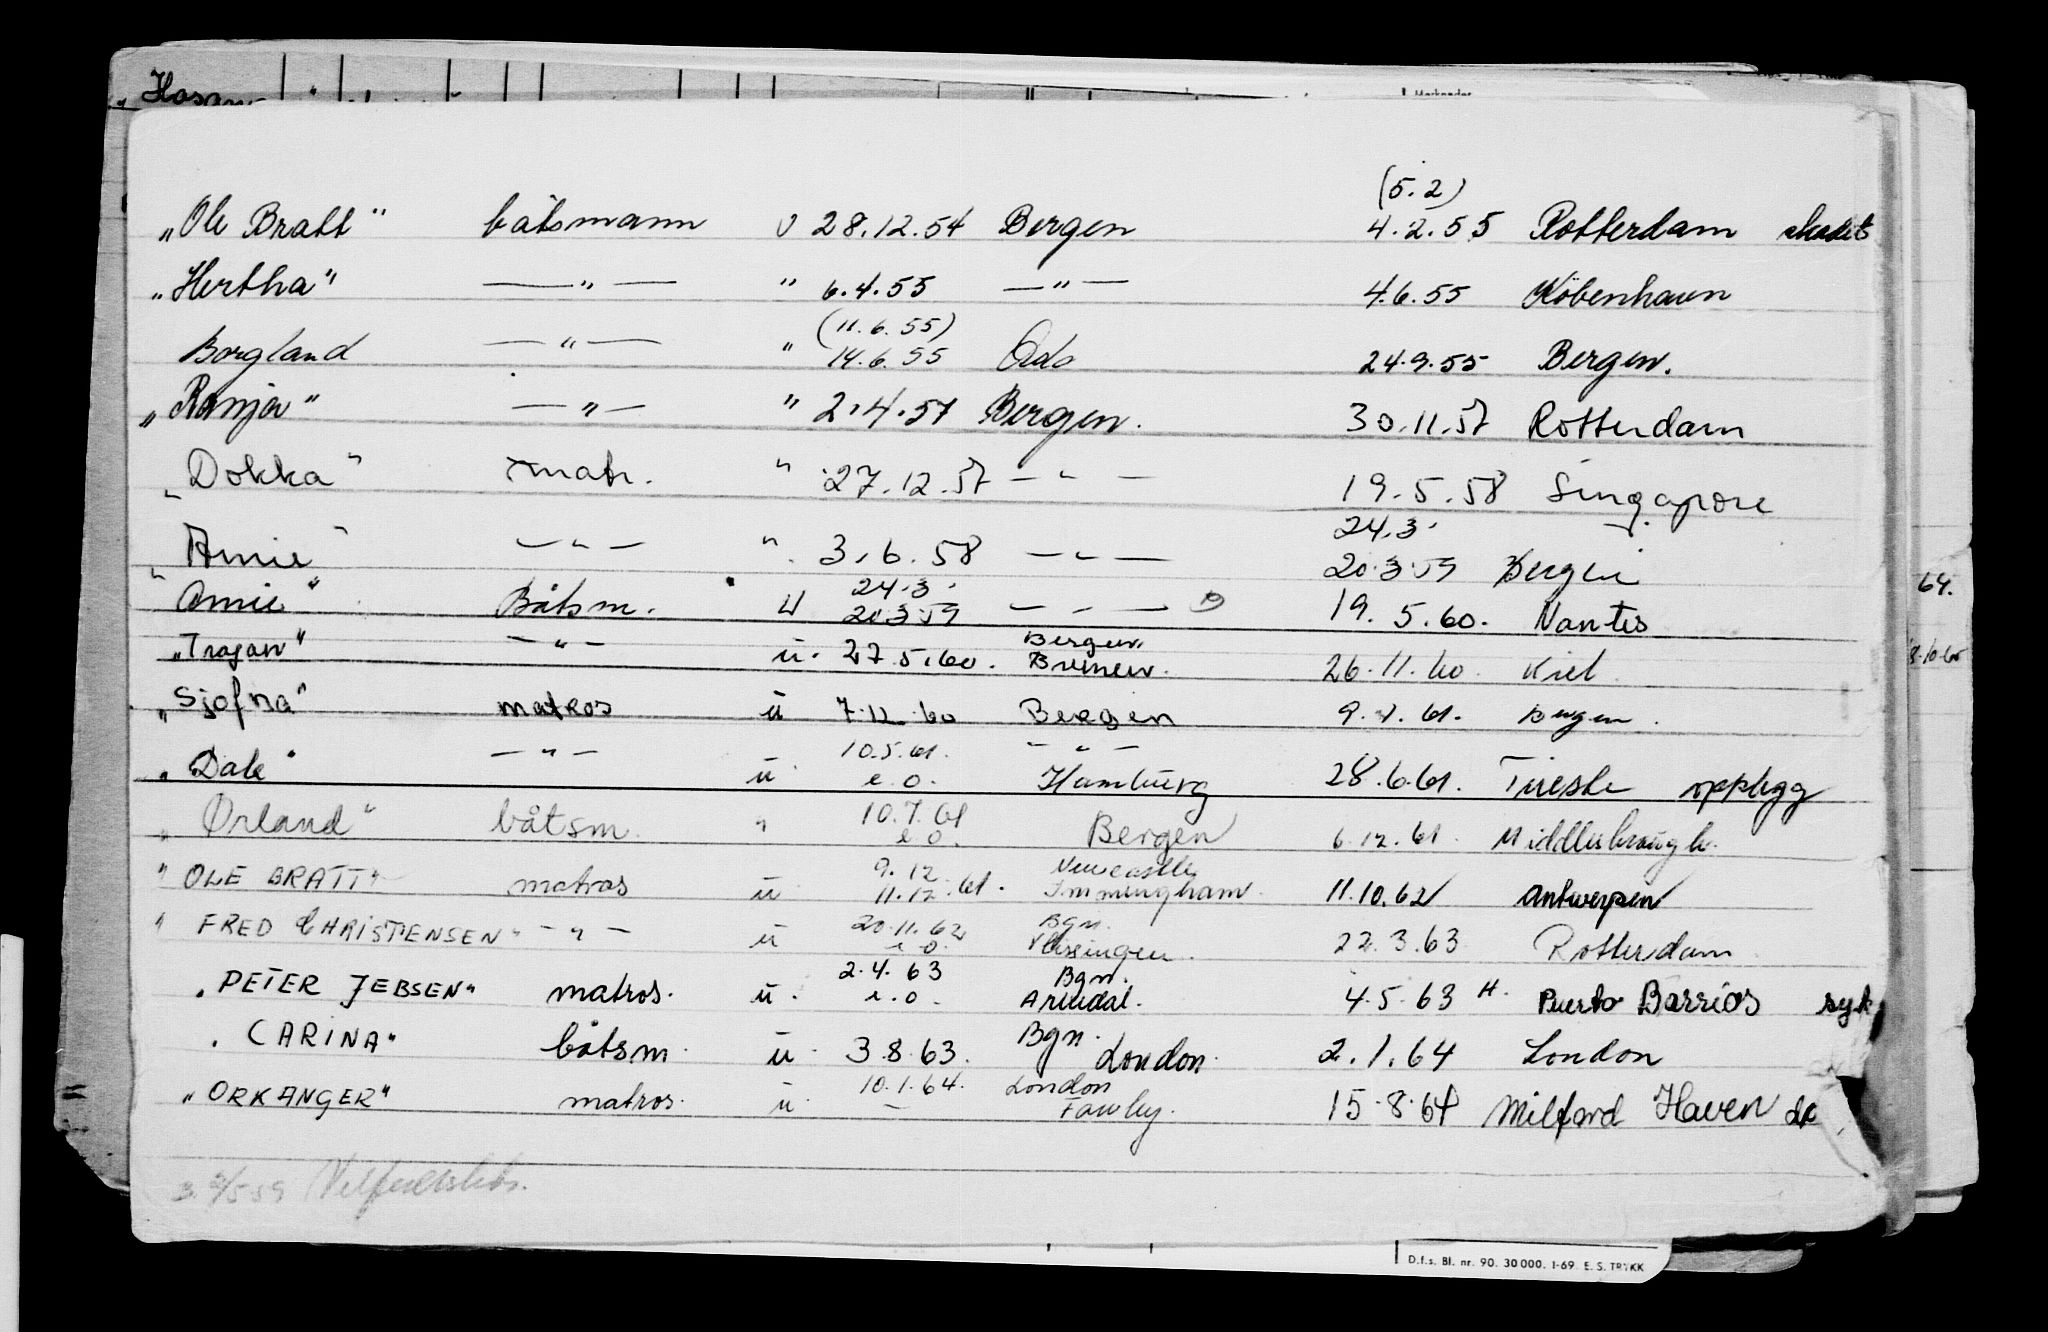 Hosan
Merknader
(5.2)
„Ole Bratt" båtsmann u 28.12.54 Bergen 4.2.55 Rotterdam skadet
„Hertha" —"— " 6.4.55 —"— 4.6.55 Köbenhavn
(11.6.55)
Borgland —"— " 14.6.55 Oslo 24.9.55 Bergen.
„Ranja" —"— " 2.4.57 Bergen. 30.11.57 Rotterdam
„Dokka" matr. " 27.12.57 —"— 19.5.58 Singapore
24.3.
„Anie" —"— " 3.6.58 —"— 20.3.59 Bergen
24.3.
Anie" Båtsm. u 20.3.59 —"— 19.5.60. Nantes
Bergen.
„Trajan" —"— ü. 27.5.60. Bremen. 26.11.60. Kiel
„Sjofna" matros ü 7.12.60 Bergen 9.1.61. Bergen.
10.5.61. —"—
„Dale" —"— ü e.o. Hamburg 28.6.61. Trieste opplegg
10.7.61
„Ørland" båtsm. " e.o. Bergen 6.12.61. Middlesbrough.
9.12 Newcastle
"OLE BRATT" matros ü 11.12.61. Immingham. 11.10.62 Antwerpen
20.11.62 Bgn.
"FRED CHRISTENSEN" —"— ü e.o. Vlissingen. 22.3.63 Rotterdam
2.4.63 Bgn.
„PETER JEBSEN" matros. ü. e.o. Arendal. 4.5.63 H. Puerto Barrios syk
Bgn.
„CARINA" båtsm. ü 3.8.63. London. 2.1.64 London
10.1.64. London
„ORKANGER" matros. ü — Fawley. 15.8.64 Milford Haven
64.
D.f.s. Bl. nr. 90. 30 000. 1-69. E. S. TRYKK